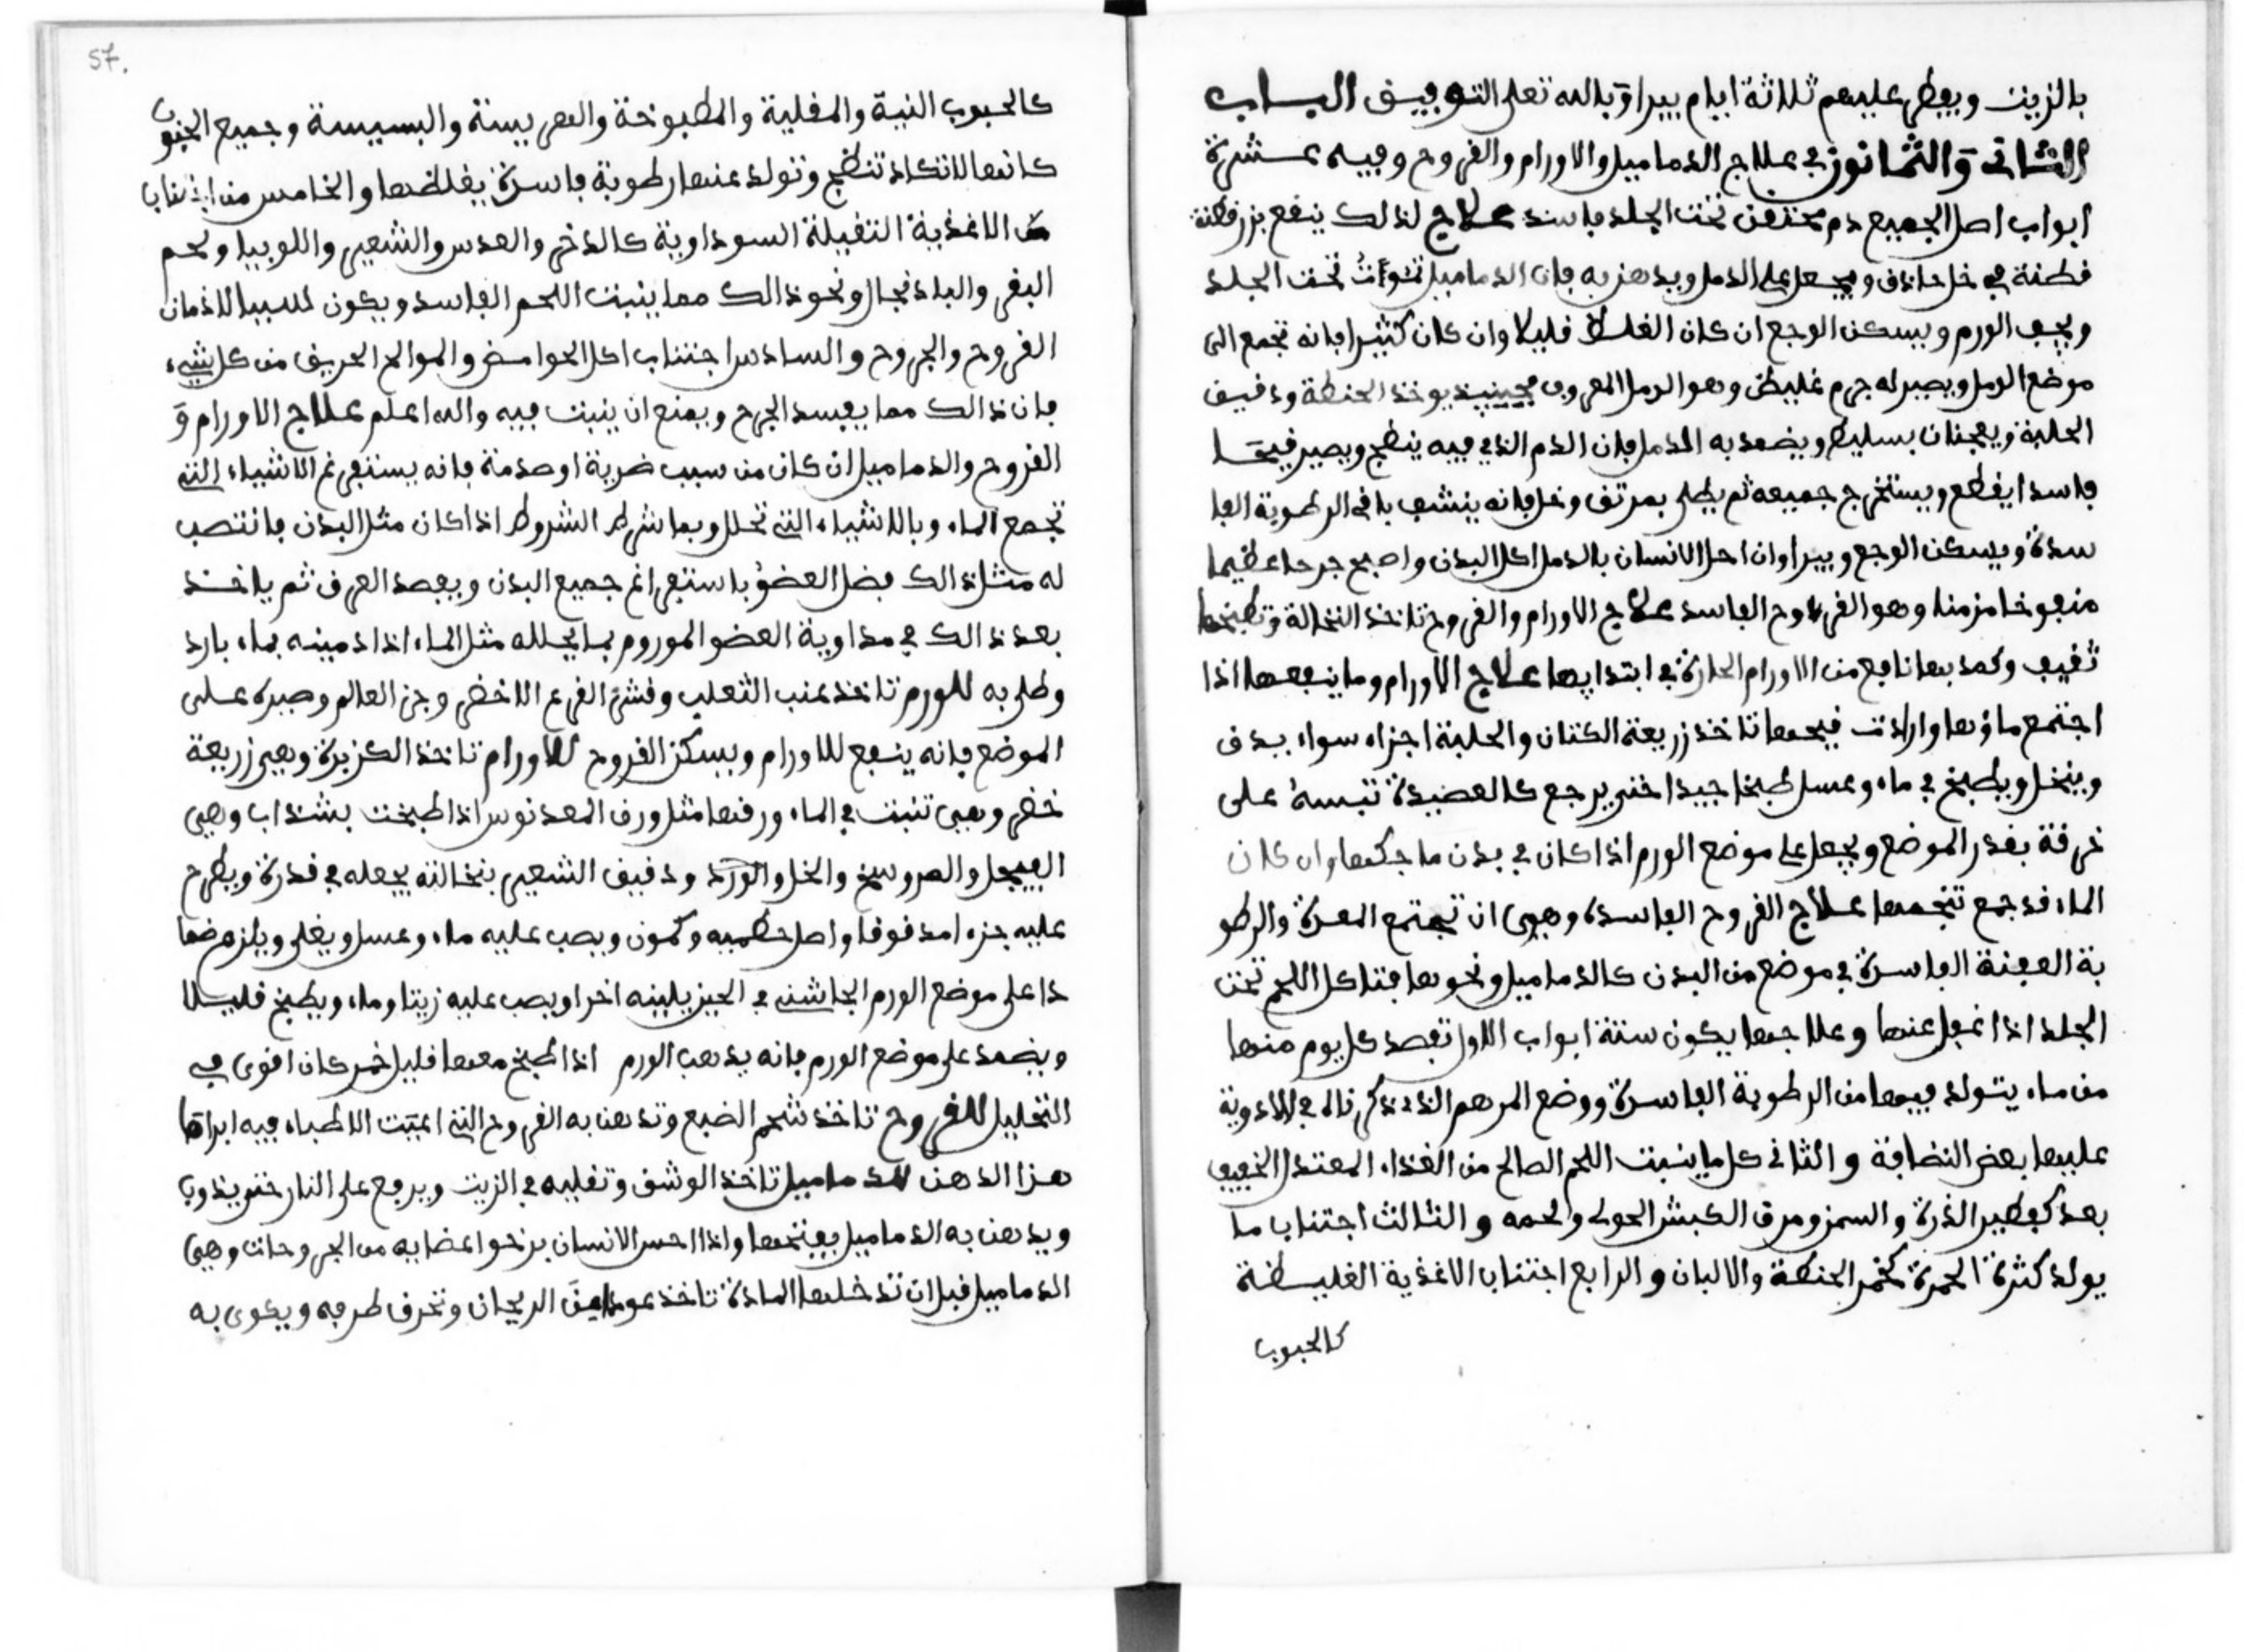 بالزيت ويفطر عليهم ثلاثة ايام يبرا وبالله تعلى التوفيق الباب
الثاني والثمانون في علاج الدماميل والاورام والقروح وفيه عشرة
ابواب اصل الجميع دم محتقن تحت الجلد فاسد علاج لذلك ينفع بزرقطنة
قطنة في خل حاذق ويجعل على الدمل ويدهن به فان الدماميل تحت الجلد
ويجف الورم ويسكن الوجع ان كان الغلظ قليلا وان كان كثيرا فانه تجمع الى
موضع الدمل ويصير له جرم غليظ وهو الدمل المعروف فحينيذ يوخذ الحنطة ودقيق
الحلبة ويعجنان بسليط ويضمد به الدمل فان الدم الذي فيه ينضج ويصير قيحا
فاسدا يقطع ويستخرج جميعه ثم يطلى بمرتق وخل فانه ينشف باقي الرطوبة الفا
سدة ويسكن الوجع ويبرا وان احل الانسان بالدمل اكل البدن واصبح جرحا عظيما
منفوخا مزمنا وهو القروح الفاسد علاج الاورام والقروح تاخذ النخالة وتطبخها
ثقيف وكمد بها نافع من الاورام الحارة في ابتدايها علاج الاورام وما ينفعها اذا
اجتمع ماؤها وارادت قيحها تاخذ زريعة الكتان والحلبة اجزاء سواء يدق
وينخل ويطبخ في ماء وعسل طبخا جيدا حتى يرجع كالعصيدة تبسه على
خرقة بقدر الموضع ويجعل على موضع الورم اذا كان في بدن ما حكها وان كان
الماء قد جمع تنجمها علاج القروح الفاسدة وهي ان تجتمع المعرة والرطو
بة العفنة الفاسرة في موضع من البدن كالدماميل ونحوها فتاكل اللحم تحت
الجلد اذا غفل عنها وعلاجها يكون ستة ابواب الاول تفصد كل يوم منها
من ماء يتولد فيها من الرطوبة الفاسرة ووضع المرهم الذي ذكرناه في الادوية
عليها بعض النضافة والثاني كل ما ينبت اللحم الصالح من الغذاء المعتدل الخفيف
بعد كفطير الذرة والسمن ومرق الكبش الحولي ولحمه والثالث اجتناب ما
يولد كثرة الحمرة كخمر الحنطة والالبان والرابع اجتناب الاغذية الغليظة
كالحبوب
57.
كالحبوب النية والمقلية والمطبوخة والهريسة والبسيسة وجميع الحبوب
كانها لا تكاد تنضج وتولد عنها رطوبة فاسرة يغلظها والخامس من اجتناب
الاغذية الثقيلة السوداوية كالدخن والعدس والشعير واللوبيا ولحم
البقر والباذنجال ونحو ذالك مما ينبت اللحم الفاسد ويكون لاذمان
القروح والجروح والسادس اجتناب اكل الحوامض والموالح الحريف من كل شيء
فان ذالك مما يفسد الجرح ويمنع ان ينبت فيه والله اعلم علاج الاورام و
القروح والدماميل ان كان من سبب ضربة او صدمة فانه يستفرغ الاشياء التي
تجمع الماء وبالاشياء التي تحلل وبما شرط الشروط اذا كان مثل البدن فانتصب
له مثل ذالك فضل العضو باستفراغ جميع البدن ويفصد العرق ثم ياخذ
بعد ذالك في مداوية العضو الموروم بما يحلله مثل الماء اذا دمينه بماء بارد
وطلي به للورم تاخذ عنب الثعلب وقشر القرع الاخضر وجز العالم وصيره على
الموضع فانه ينفع للاورام ويسكن القروح للاورام تاخذ الكزبرة وهي زريعة
خضر وهي تنبت في الماء ورقها مثل ورق المعدنوس اذا طبخت بشذاب وهي
الفيجل والصروسخ والخل والورد ودقيق الشعير بنخالته يجعله في قدرة ويطرح
عليه جزء امدقوقا واصل خطميه وكمون ويصب عليه ماء وعسل ويغلى ويلزم ضما
دا على موضع الورم الجاشي في الحين يلينه اخر او يصب عليه زيتا وماء ويطبخ قليلا
ويضمد على موضع الورم فانه يذهب الورم اذا طبخ معها قليل خمر كان اقوى في
التحليل للقروح تاخذ شحم الضبع وتدهن به القروح التي اعيت الاطباء فيه ابراها
هزا الدهن للدماميل تاخذ الوشق وتغليه في الزيت ويرفع على النار حتى يذوب
ويدهن به الدماميل يفتحها واذا احس الانسان بنحو اعضايه من الجروحات وهي
الدماميل قبل ان تدخلها المادة تاخذ عود الريحان وتحرق طرفه ويكوى به